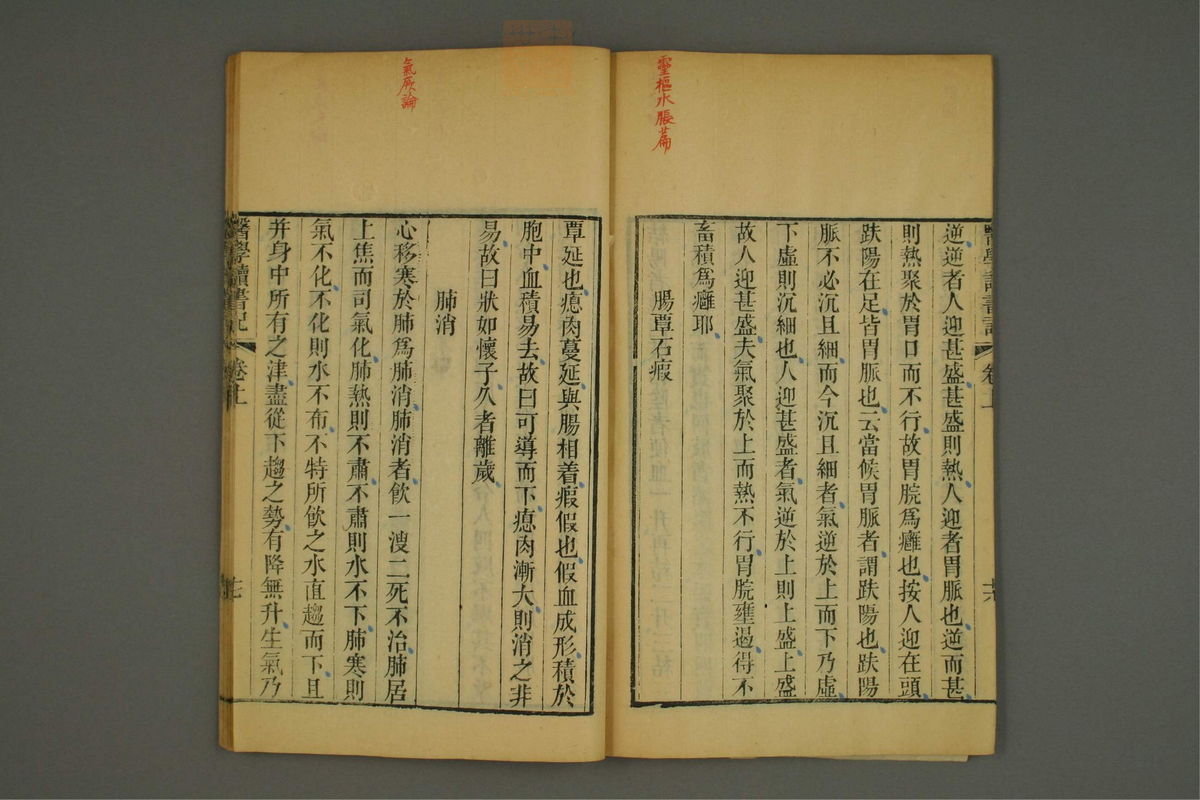 靈樞水脹篇
醫學讀書記 卷上 十六
逆逆者人迎甚盛甚盛則熱人迎者胃脈也逆而甚
則熱聚於胃口而不行故胃脘爲癰也按人迎在頭
趺陽在足皆胃脈也云當候胃脈者謂趺陽也趺陽
脈不必沉且細而今沉且細者氣逆於上而下乃虛
下虛則沉細也人迎甚盛者氣逆於上則上盛上盛
故人迎甚盛夫氣聚於上而熱不行胃脘壅遏得不
畜積爲癰耶
腸覃石瘕
氣厥論
覃延也瘜肉蔓延與腸相着瘕假也假血成形積於
胞中血積易去故曰可導而下瘜肉漸大則消之非
易故曰狀如懷子久者離歲
肺消
心移寒於肺爲肺消肺消者飲一溲二死不治肺居
上焦而司氣化肺熱則不肅不肅則水不下肺寒則
氣不化不化則水不布不特所飲之水直趨而下且
并身中所有之津盡從下趨之勢有降無升生氣乃
醫學讀書記 卷上 十七